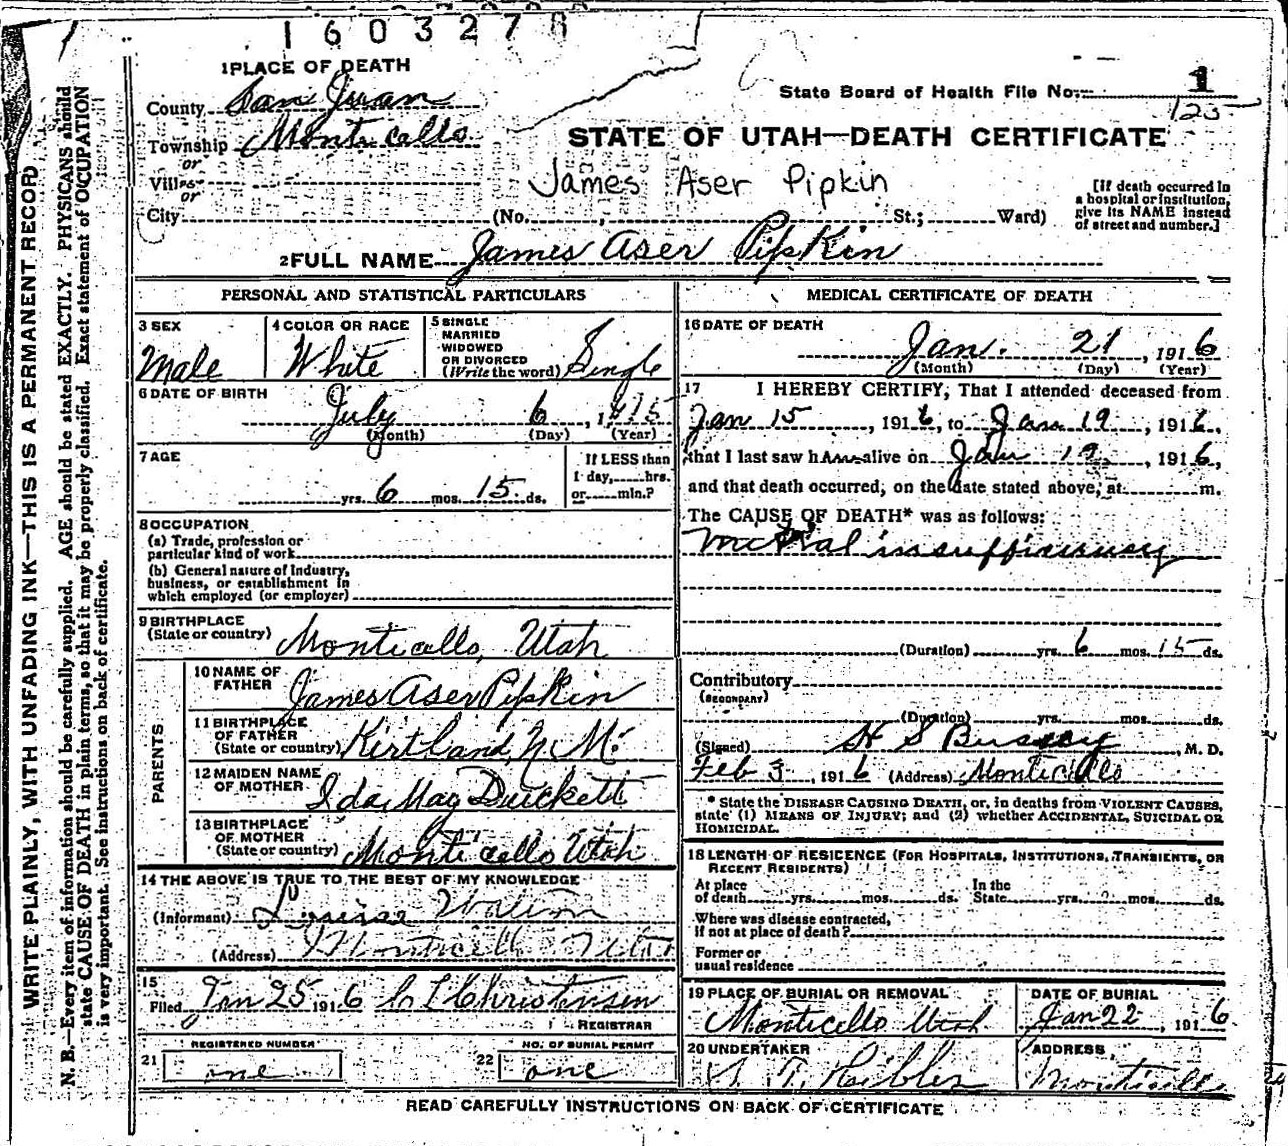 1603278
1 PLACE OF DEATH
County San Juan
State Board of Health File No. 1
125
Township Monticello
STATE OF UTAH—DEATH CERTIFICATE
or
Village
James Aser Pipkin
or
City (No. , St.; Ward)
[If death occurred in
a hospital or institution,
give its NAME instead
of street and number.]
2 FULL NAME James Aser Pipkin
PERSONAL AND STATISTICAL PARTICULARS
3 SEX
Male
4 COLOR OR RACE
White
5 SINGLE
MARRIED
WIDOWED
OR DIVORCED
(Write the word) Single
6 DATE OF BIRTH
July 6, 1915
(Month) (Day) (Year)
7 AGE
yrs. 6 mos. 15 ds.
If LESS than
1 day, hrs.
or min.?
8 OCCUPATION
(a) Trade, profession or
particular kind of work
(b) General nature of Industry,
business, or establishment in
which employed (or employer)
9 BIRTHPLACE
(State or country) Monticello, Utah
PARENTS
10 NAME OF
FATHER James Aser Pipkin
11 BIRTHPLACE
OF FATHER
(State or country) Kirtland, N. M.
12 MAIDEN NAME
OF MOTHER Ida May Duickett
13 BIRTHPLACE
OF MOTHER
(State or country) Monticello Utah
14 THE ABOVE IS TRUE TO THE BEST OF MY KNOWLEDGE
(Informant)
(Address) Monticello Utah
15
Filed Jan 25 1916 Christensen
REGISTRAR
21 REGISTERED NUMBER
one
22 NO. OF BURIAL PERMIT
one
MEDICAL CERTIFICATE OF DEATH
16 DATE OF DEATH
Jan. 21, 1916
(Month) (Day) (Year)
17 I HEREBY CERTIFY, That I attended deceased from
Jan 15, 1916, to Jan 19, 1916,
that I last saw him alive on Jan 19, 1916,
and that death occurred, on the date stated above, at m.
The CAUSE OF DEATH* was as follows:
mitral insufficiency
(Duration) yrs. 6 mos. 15 ds.
Contributory
(SECONDARY)
(Duration) yrs. mos. ds.
(Signed) H S , M. D.
Feb 3, 1916 (Address) Monticello
* State the DISEASE CAUSING DEATH, or, in deaths from VIOLENT CAUSES,
state (1) MEANS OF INJURY; and (2) whether ACCIDENTAL, SUICIDAL OR
HOMICIDAL.
18 LENGTH OF RESIDENCE (FOR HOSPITALS, INSTITUTIONS, TRANSIENTS, OR
RECENT RESIDENTS)
At place
of death yrs. mos. ds.
In the
State yrs. mos. ds.
Where was disease contracted,
if not at place of death?
Former or
usual residence
19 PLACE OF BURIAL OR REMOVAL
Monticello Utah
DATE OF BURIAL
Jan 22, 1916
20 UNDERTAKER
ADDRESS
Monticello
READ CAREFULLY INSTRUCTIONS ON BACK OF CERTIFICATE
WRITE PLAINLY, WITH UNFADING INK—THIS IS A PERMANENT RECORD
N. B.—Every item of information should be carefully supplied. AGE should be stated EXACTLY. PHYSICIANS should
state CAUSE OF DEATH in plain terms, so that it may be properly classified. Exact statement of OCCUPATION
is very important. See instructions on back of certificate.